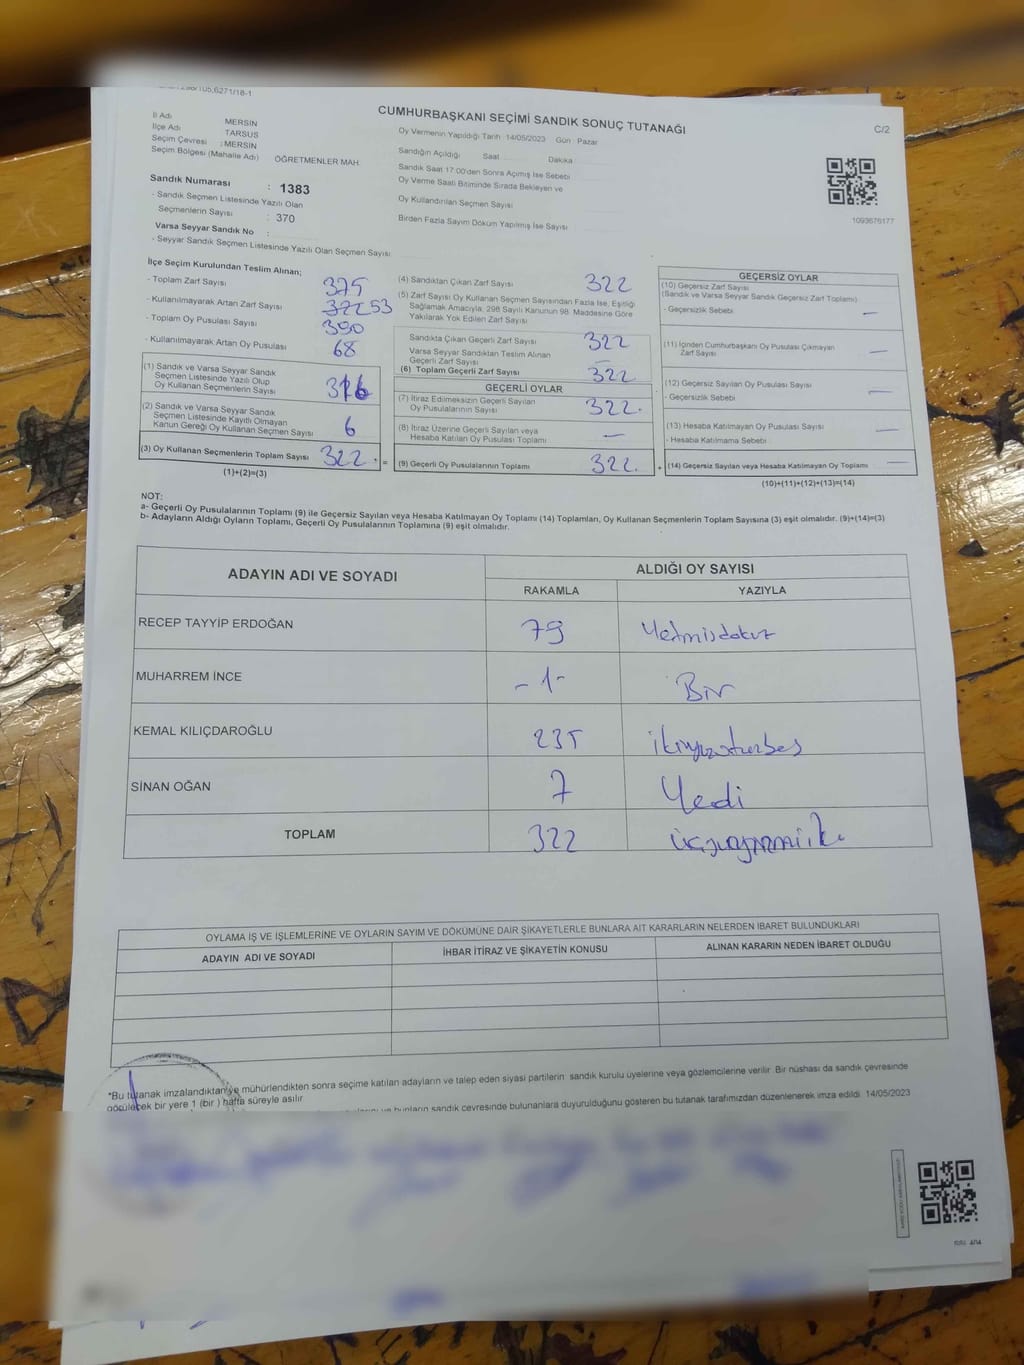 CUMHURBAŞKANI SEÇİMİ SANDIK SONUÇ TUTANAĞI
C/2
İl Adı MERSİN
İlçe Adı TARSUS
Seçim Çevresi : MERSİN
Seçim Bölgesi (Mahalle Adı) ÖĞRETMENLER MAH.
Sandık Numarası : 1383
- Sandık Seçmen Listesinde Yazılı Olan
Seçmenlerin Sayısı : 370
Varsa Seyyar Sandık No :
- Seyyar Sandık Seçmen Listesinde Yazılı Olan Seçmen Sayısı
Oy Vermenin Yapıldığı Tarih 14/05/2023 Gün : Pazar
Sandığın Açıldığı Saat Dakika
Sandık Saat 17:00'den Sonra Açımış İse Sebebi
Oy Verme Saati Bitiminde Sırada Bekleyen ve
Oy Kullandırılan Seçmen Sayısı
Birden Fazla Sayım Döküm Yapılmış İse Sayısı
1093676177
İlçe Seçim Kurulundan Teslim Alınan;
- Toplam Zarf Sayısı 375
- Kullanılmayarak Artan Zarf Sayısı 53
- Toplam Oy Pusulası Sayısı 390
- Kullanılmayarak Artan Oy Pusulası 68
(1) Sandık ve Varsa Seyyar Sandık
Seçmen Listesinde Yazılı Olup
Oy Kullanan Seçmenlerin Sayısı
(2) Sandık ve Varsa Seyyar Sandık
Seçmen Listesinde Kayıtlı Olmayan
Kanun Gereği Oy Kullanan Seçmen Sayısı 6
(3) Oy Kullanan Seçmenlerin Toplam Sayısı 322. =
(1)+(2)=(3)
(4) Sandıktan Çıkan Zarf Sayısı 322
(5) Zarf Sayısı Oy Kullanan Seçmen Sayısından Fazla İse, Eşitliği
Sağlamak Amacıyla, 298 Sayılı Kanunun 98. Maddesine Göre
Yakılarak Yok Edilen Zarf Sayısı
Sandıkta Çıkan Geçerli Zarf Sayısı 322
Varsa Seyyar Sandıktan Teslim Alınan
Geçerli Zarf Sayısı —
(6) Toplam Geçerli Zarf Sayısı 322
GEÇERLİ OYLAR
(7) İtiraz Edilmeksizin Geçerli Sayılan
Oy Pusulalarının Sayısı 322.
(8) İtiraz Üzerine Geçerli Sayılan veya
Hesaba Katılan Oy Pusulası Toplamı —
(9) Geçerli Oy Pusulalarının Toplamı 322. +
GEÇERSİZ OYLAR
(10) Geçersiz Zarf Sayısı
(Sandık ve Varsa Seyyar Sandık Geçersiz Zarf Toplamı)
- Geçersizlik Sebebi —
(11) İçinden Cumhurbaşkanı Oy Pusulası Çıkmayan
Zarf Sayısı —
(12) Geçersiz Sayılan Oy Pusulası Sayısı —
- Geçersizlik Sebebi
(13) Hesaba Katılmayan Oy Pusulası Sayısı —
- Hesaba Katılmama Sebebi
(14) Geçersiz Sayılan veya Hesaba Katılmayan Oy Toplamı —
(10)+(11)+(12)+(13)=(14)
NOT:
a- Geçerli Oy Pusulalarının Toplamı (9) ile Geçersiz Sayılan veya Hesaba Katılmayan Oy Toplamı (14) Toplamları, Oy Kullanan Seçmenlerin Toplam Sayısına (3) eşit olmalıdır. (9)+(14)=(3)
b- Adayların Aldığı Oyların Toplamı, Geçerli Oy Pusulalarının Toplamına (9) eşit olmalıdır.
ADAYIN ADI VE SOYADI ALDIĞI OY SAYISI
RAKAMLA YAZIYLA
RECEP TAYYİP ERDOĞAN 79 Yetmişdokuz
MUHARREM İNCE -1- Bir
KEMAL KILIÇDAROĞLU 235 ikiyüzotuzbeş
SİNAN OĞAN 7 Yedi
TOPLAM 322 üçyüzyirmiiki
OYLAMA İŞ VE İŞLEMLERİNE VE OYLARIN SAYIM VE DÖKÜMÜNE DAİR ŞİKAYETLERLE BUNLARA AİT KARARLARIN NELERDEN İBARET BULUNDUKLARI
ADAYIN ADI VE SOYADI İHBAR İTİRAZ VE ŞİKAYETİN KONUSU ALINAN KARARIN NEDEN İBARET OLDUĞU
*Bu tutanak imzalandıktan ve mühürlendikten sonra seçime katılan adayların ve talep eden siyasi partilerin sandık kurulu üyelerine veya gözlemcilerine verilir. Bir nüshası da sandık çevresinde
görülecek bir yere 1 (bir) hafta süreyle asılır
bunların sandık çevresinde bulunanlara duyurulduğunu gösteren bu tutanak tarafımızdan düzenlenerek imza edildi. 14/05/2023